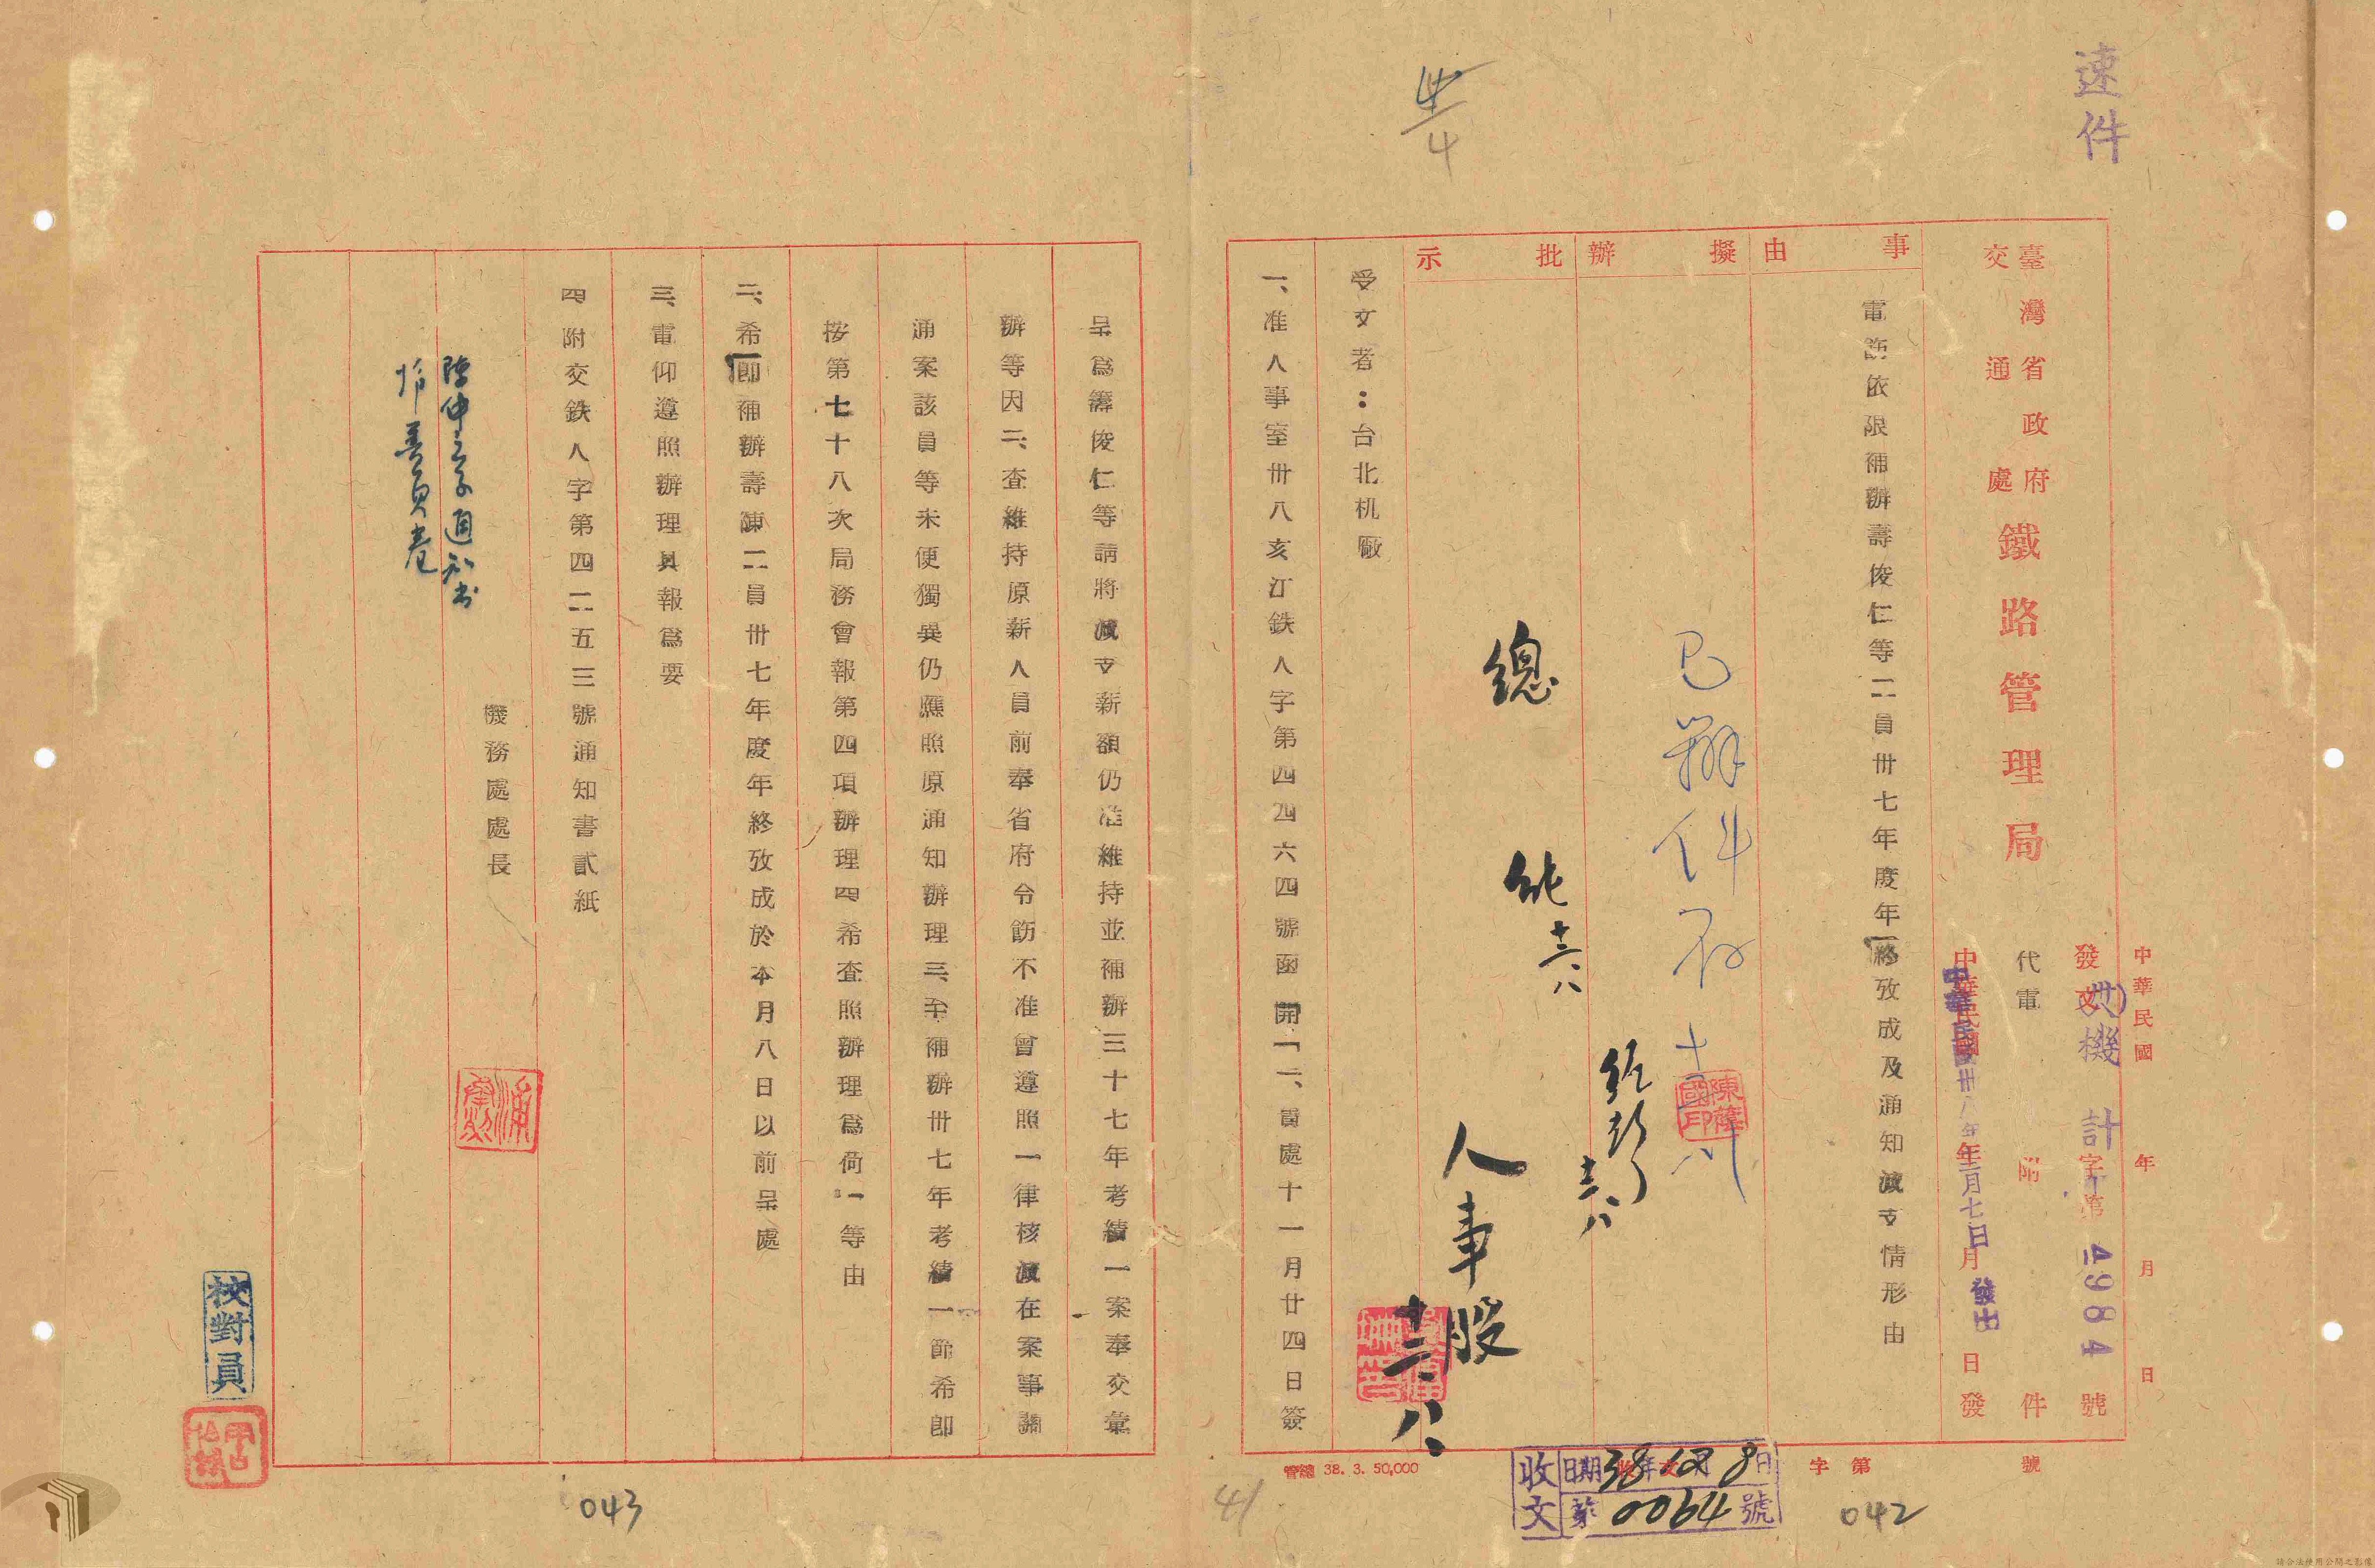 速件
中華民國 年 月 日
發文 (卅)機 計 字第 4984 號
臺灣省政府
交通處
鐵路管理局
代電
附 件
中華民國 年 月 日發
中華民國卅八年十二月七日發出
事由
電飭依限補辦壽俊仁等二員卅七年度年終攷成及通知減支情形由
擬辦
已辦件存
陳薩國印
批示
總
人事股
十二、八
受文者：台北机廠
一、准人事室卅八亥江鉄人字第四四六四號函開「一、貴處十一月廿四日簽
呈爲壽俊仁等請將減支薪額仍准維持並補辦三十七年考績一案奉交彙
辦等因二、查維持原薪人員前奉省府令飭不准曾遵照一律核減在案事關
通案該員等未便獨異仍應照原通知辦理三、至補辦卅七年考績一節希即
按第七十八次局務會報第四項辦理四希查照辦理爲荷」等由
二、希即補辦壽陳二員卅七年度年終攷成於本月八日以前呈處
三、電仰遵照辦理具報爲要
四附交鉄人字第四二五三號通知書貳紙
機務處處長
校對員
管總 38. 3. 50,000
收文 日期 38年12月8日
第 0064 號
字第 號
41
042
043